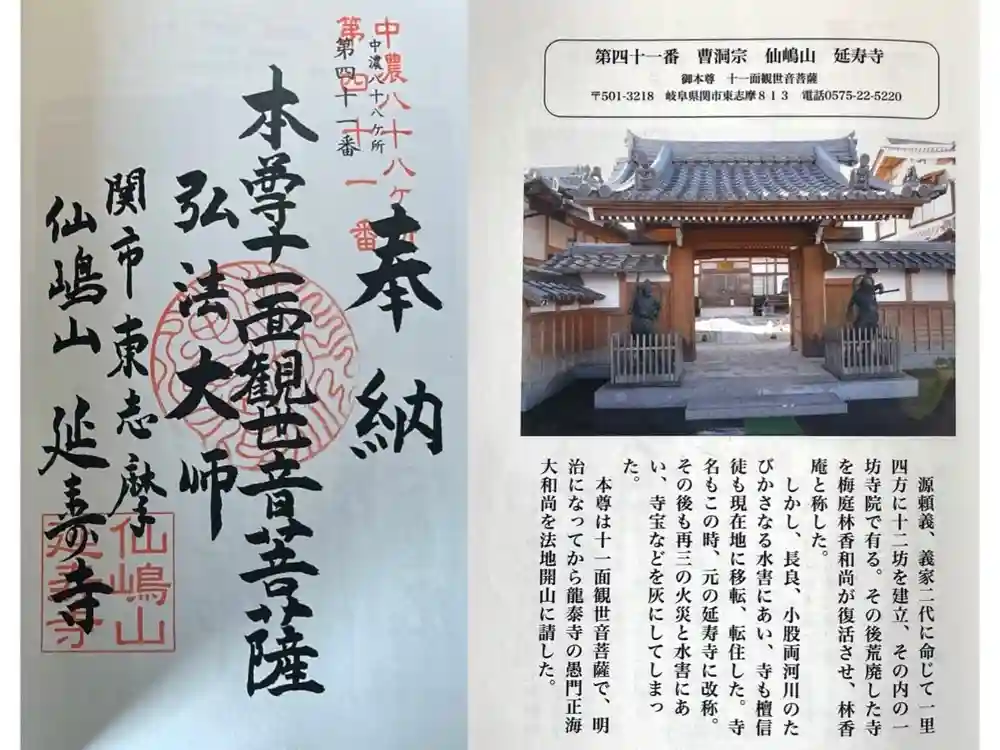 中農八十八ヶ所
第四十一番
中濃八十八ヶ所
第四十一番
奉納
本尊十一面観世音菩薩
弘法大師
関市東志摩
仙嶋山 延寿寺
仙嶋山
延寿寺
第四十一番 曹洞宗 仙嶋山 延寿寺
御本尊 十一面観世音菩薩
〒501-3218 岐阜県関市東志摩813 電話0575-22-5220
源頼義、義家二代に命じて一里
四方に十二坊を建立、その内の一
坊寺院で有る。その後荒廃した寺
を梅庭林香和尚が復活させ、林香
庵と称した。
しかし、長良、小股両河川のた
びかさなる水害にあい、寺も檀信
徒も現在地に移転、転住した。寺
名もこの時、元の延寿寺に改称。
その後も再三の火災と水害にあ
い、寺宝などを灰にしてしまっ
た。
本尊は十一面観世音菩薩で、明
治になってから龍泰寺の愚門正海
大和尚を法地開山に請した。